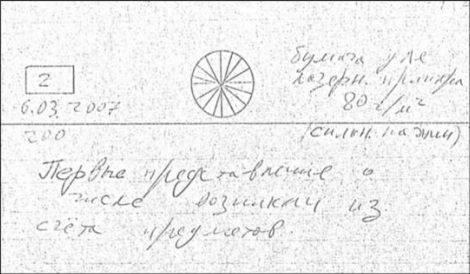 2
6.03.2007
200
бумага для
лазерн. принтера
80 г/м²
(сильн. нажим)
Первые представление о
числе возникли из
счёта предметов